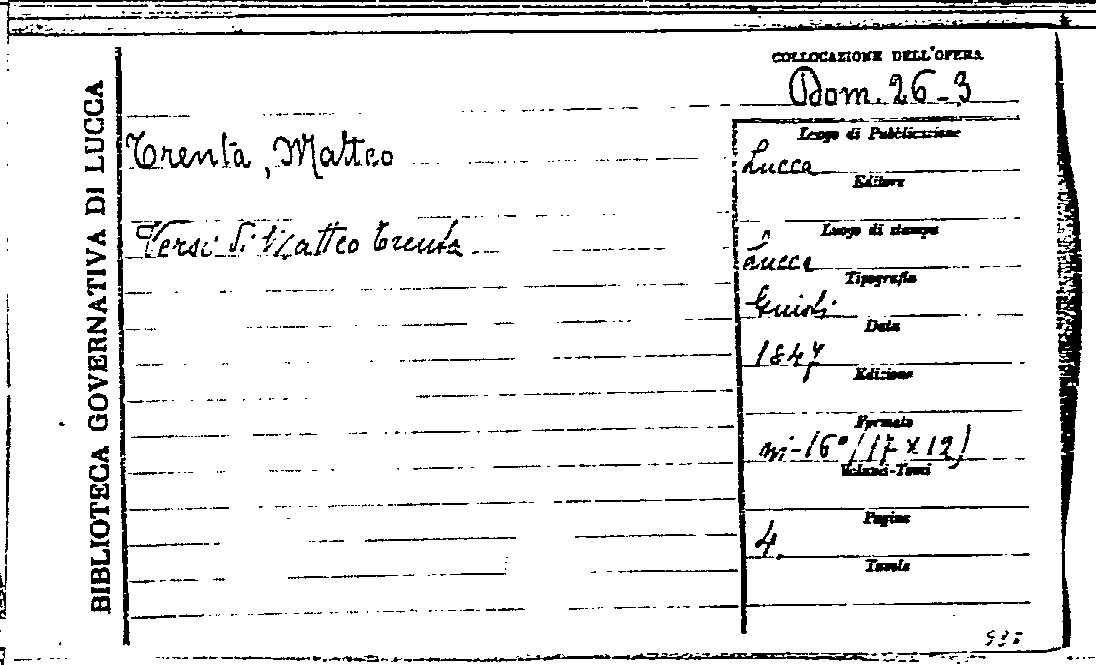 BIBLIOTECA GOVERNATIVA DI LUCCA
COLLOCAZIONE DELL'OPERA
Dom. 26-3
Trenta, Matteo
Versi di Matteo Trenta
Luogo di Pubblicazione
Lucca
Editore
Luogo di stampa
Lucca
Tipografia
Data
1847
Edizione
Formato
in-16° (17 x 12)
Volumi-Tomi
Pagine
4.
Tavole